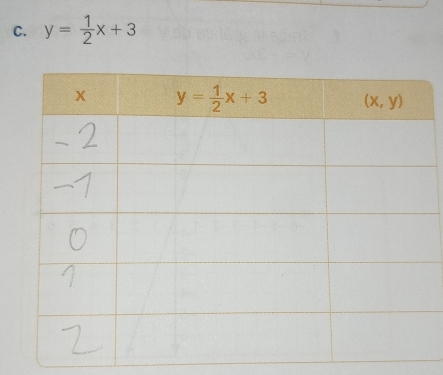 c. y = 1/2 x + 3
x y = 1/2 x + 3 (x, y)
-2
-1
0
1
2